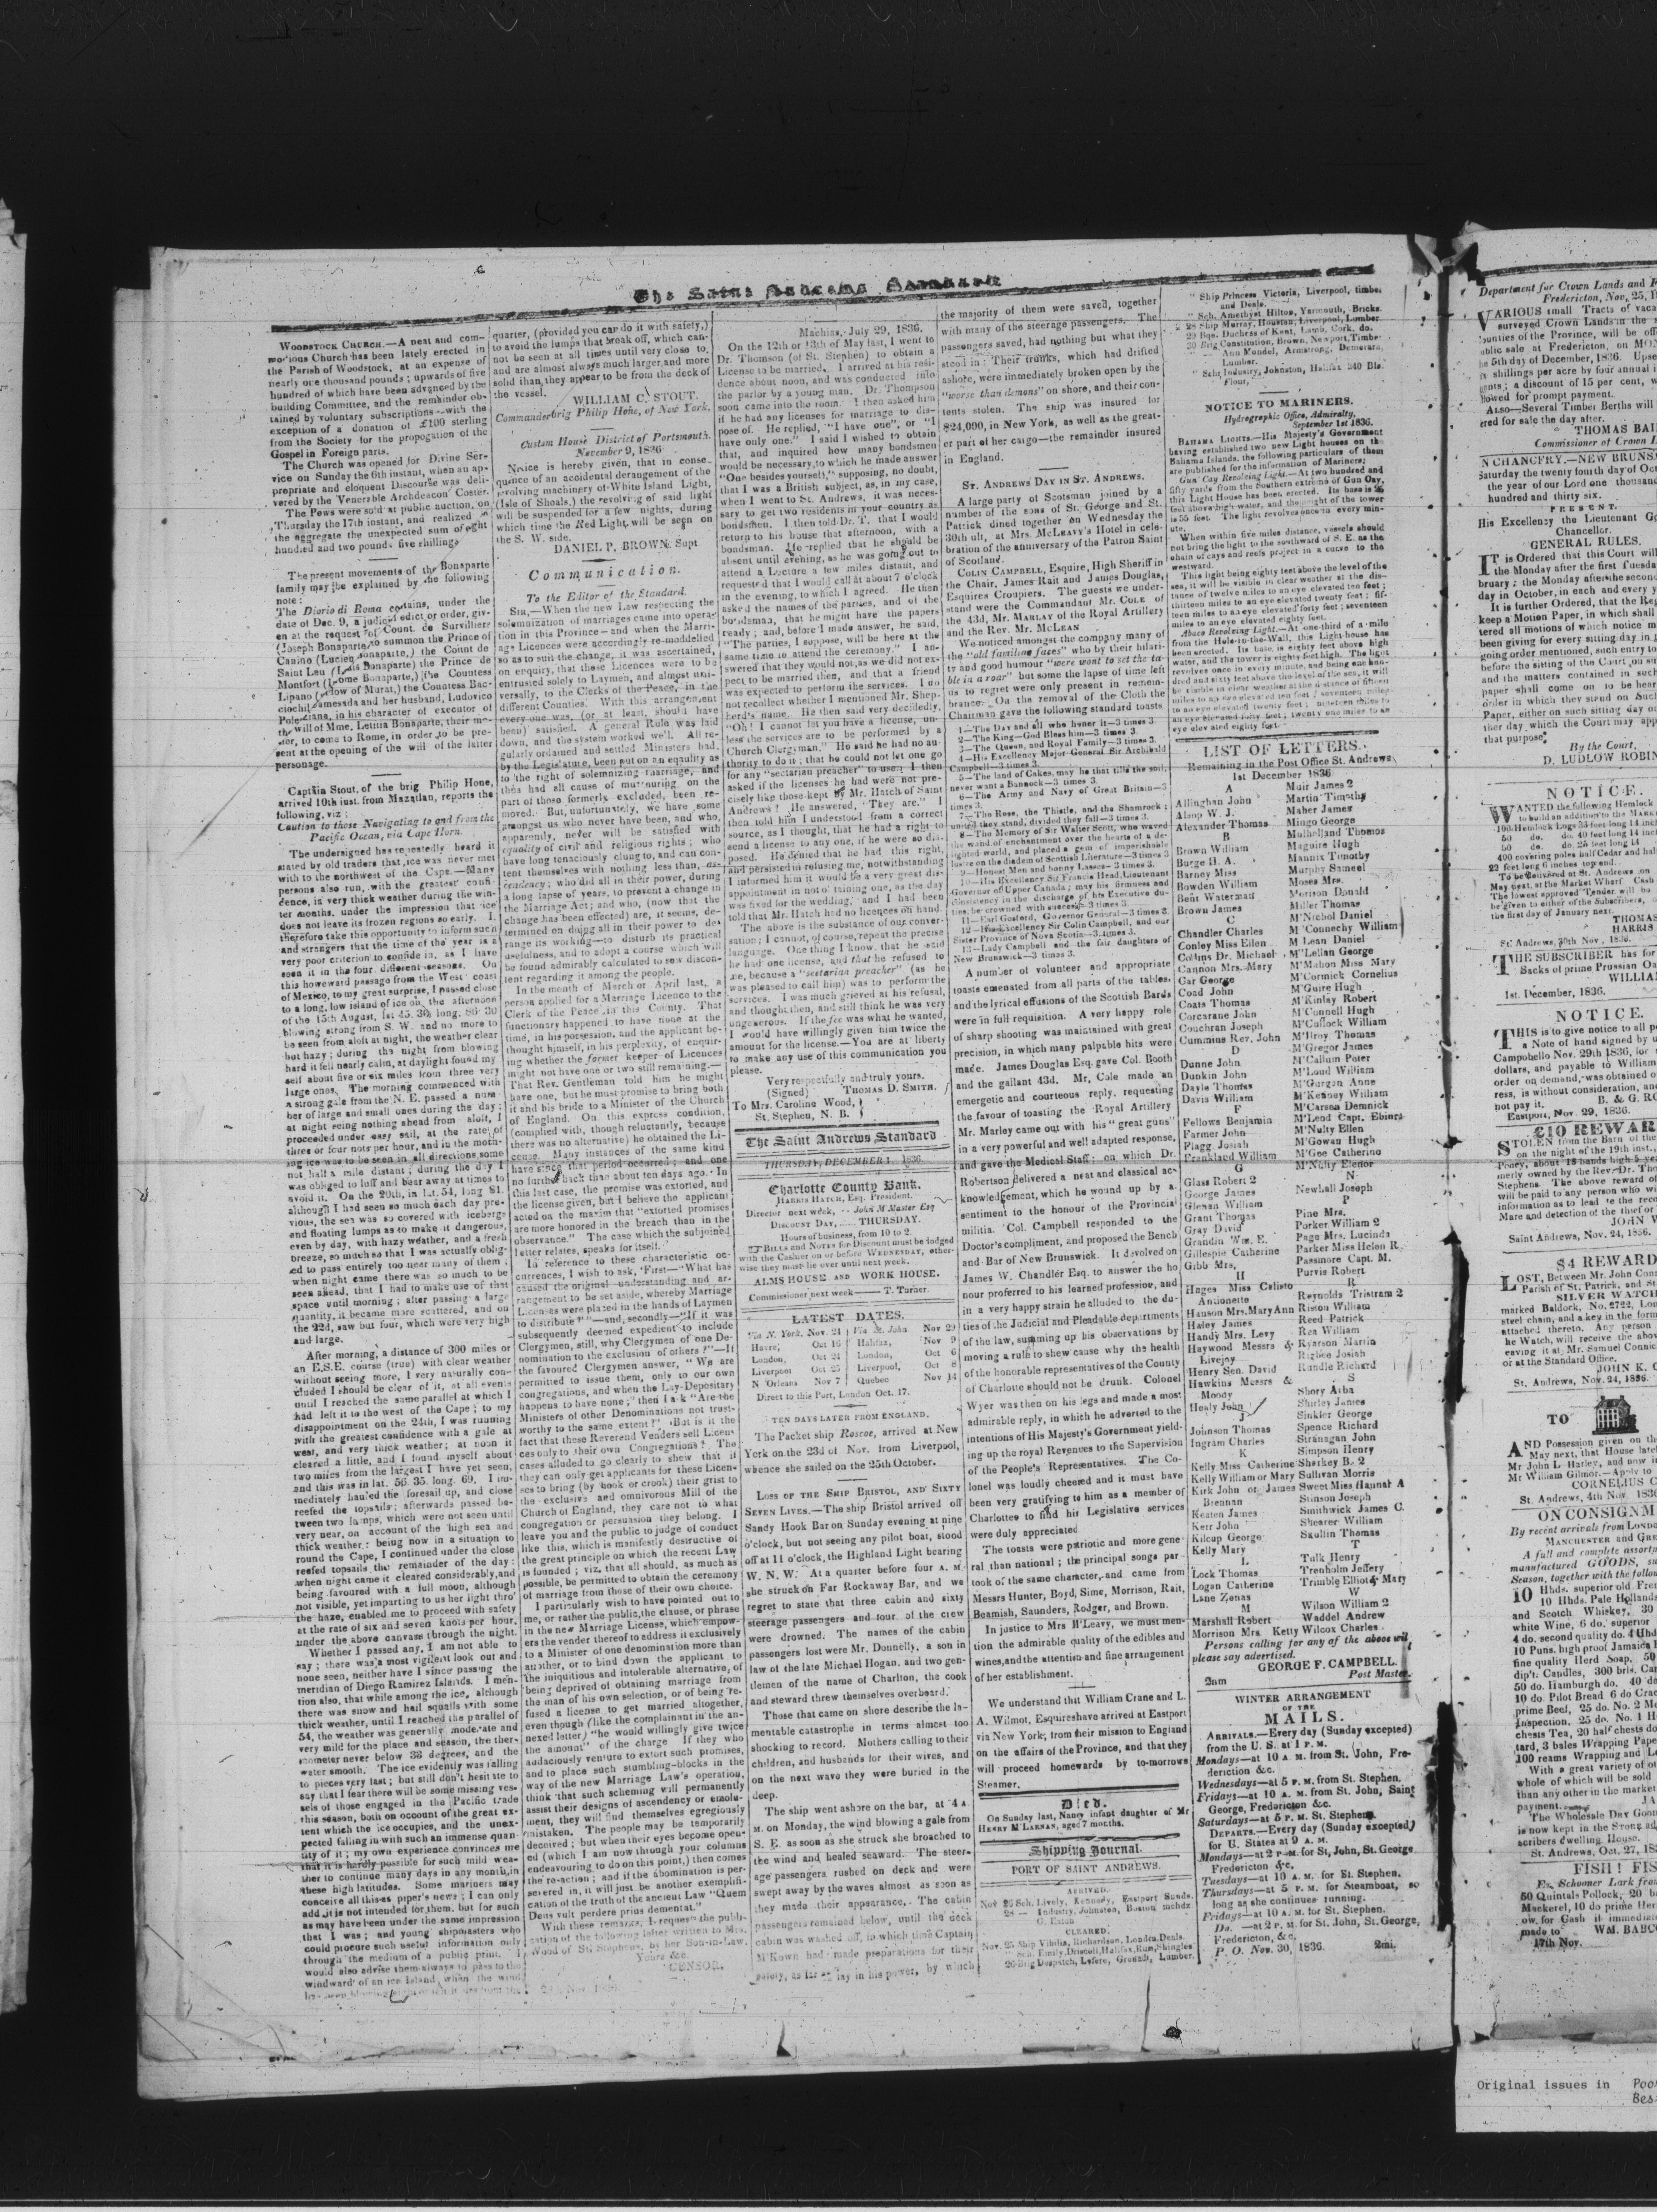 The Saint Andrews Standard
WOODSTOCK CHURCH.—A neat and com-
modious Church has been lately erected in
the Parish of Woodstock, at an expense of
nearly one thousand pounds; upwards of five
hundred of which have been advanced by the
building Committee, and the remainder ob-
tained by voluntary subscriptions—with the
exception of a donation of £100 sterling
from the Society for the propogation of the
Gospel in Foreign parts.
The Church was opened for Divine Ser-
vice on Sunday the 6th instant, when an ap-
propriate and eloquent Discourse was deli-
vered by the Venerable Archdeacon Coster.
The Pews were sold at public auction, on
Thursday the 17th instant, and realized in
the aggregate the unexpected sum of eight
hundred and two pounds five shillings
The present movements of the Bonaparte
family may be explained by the following
note:
The Diario di Roma contains, under the
date of Dec. 9, a judicial edict or order, giv-
en at the request of Count. de Survilliers
(Joseph Bonaparte,) to summon the Prince of
Canino (Lucien Bonaparte,) the Count de
Saint Leu (Louis Bonaparte) the Prince de
Montfort (Jerome Bonaparte,) the Countess
Lipano (widow of Murat,) the Countess Bac-
the will of Mme, Letitia Bonaparte, their mo-
ther, to come to Rome, in order to be pre-
sent at the opening of the will of the latter
personage.
Captain Stout, of the brig Philip Hone,
arrived 10th inst. from Mazatlan, reports the
following, viz:
Caution to those Navigating to and from the
Pacific Ocean, via Cape Horn.
The undersigned has repeatedly heard it
stated by old traders that ice was never met
with to the northwest of the Cape.—Many
persons also run, with the greatest confi-
dence, in very thick weather during the win-
ter months, under the impression that ice
does not leave its frozen regions so early. I,
therefore take this opportunity to inform such
and strangers that the time of the year is a
very poor criterion to confide in, as I have
seen it in the four different seasons. On
this homeward passage from the West coast
of Mexico, to my great surprise, I passed close
to a long, low island of ice on the afternoon
of the 15th August, lat 45. 30, long. 86 30
blowing strong from S. W. and no more to
be seen from aloft at night, the weather clear
but hazy; during the night from blowing
hard it fell nearly calm, at daylight found my
self about five or six miles from three very
large ones. The morning commenced with
a strong gale from the N. E. passed a num-
ber of large and small ones during the day;
at night seeing nothing ahead from aloft, I
proceeded under easy sail, at the rate of
three or four nots per hour, and in the morn-
ing ice was to be seen in all directions, some
not half a mile distant; during the day I
was obliged to luff and bear away at times to
avoid it. On the 20th, in Lat. 54, long 81.
although I had seen so much each day pre-
vious, the sea was so covered with icebergs
and floating lumps as to make it dangerous,
even by day, with hazy weather, and a fresh
breeze, so much so that I was actually oblig-
ed to pass entirely too near many of them;
when night came there was so much to be
seen ahead, that I had to make use of that
space until morning; after passing a large
quantity, it became more scattered, and on
the 22d, saw but four, which were very high
and large.
After morning, a distance of 300 miles or
an E.S.E. course (true) with clear weather
without seeing more, I very naturally con-
cluded I should be clear of it, at all events
until I reached the same parallel at which I
had left it to the west of the Cape; to my
disappointment on the 24th, I was running
with the greatest confidence with a gale at
west, and very thick weather; at noon it
cleared a little, and I found myself about
two miles from the largest I have yet seen,
and this was in lat. 56. 35. long. 69. I im-
mediately hauled the foresail up, and close
reefed the topsails; afterwards passed be-
tween two lumps, which were not seen until
very near, on account of the high sea and
thick weather: being now in a situation to
round the Cape, I continued under the close
reefed topsails the remainder of the day:
when night came it cleared considerably, and
being favoured with a full moon, although
not visible, yet imparting to us her light thro'
the haze, enabled me to proceed with safety
at the rate of six and seven knots per hour,
under the above canvass through the night.
Whether I passed any, I am not able to
say; there was a most vigilent look out and
none seen, neither have I since passing the
meridian of Diego Ramirez Islands. I men-
tion also, that while among the ice, although
there was snow and hail squalls with some
thick weather, until I reached the parallel of
54, the weather was generally moderate and
very mild for the place and season, the ther-
mometer never below 38 degrees, and the
water smooth. The ice evidently was falling
to pieces very fast; but still don't hesitate to
say that I fear there will be some missing ves-
sels of those engaged in the Pacific trade
this season, both on account of the great ex-
tent which the ice occupies, and the unex-
pected falling in with such an immense quan-
tity of it; my own experience convinces me
that it is hardly possible for such mild wea-
ther to continue many days in any month, in
these high latitudes. Some mariners may
conceive all this as piper's news; I can only
add it is not intended for them, but for such
as may have been under the same impression
that I was; and young shipmasters who
could procure such useful information only
through the medium of a public print. I
would also advise them always to pass to the
windward of an ice Island, when the wind
quarter, (provided you can do it with safety,)
to avoid the lumps that break off, which can-
not be seen at all times until very close to,
and are almost always much larger, and more
solid than they appear to be from the deck of
the vessel.
WILLIAM C. STOUT.
Commander brig Philip Hone, of New York.
Custom House District of Portsmouth.
November 9, 1836
Notice is hereby given, that in conse-
quince of an accidental derangement of the
revolving machinery of White Island Light,
(Isle of Shoals,) the revolving of said light
will be suspended for a few nights, during
which time the Red Light, will be seen on
the S. W. side.
DANIEL P. BROWN. Supt
Communication.
To the Editor of the Standard.
SIR,—When the new Law respecting the
solemnization of marriages came into opera-
tion in this Province—and when the Marri-
age Licences were accordingly re-moddelled
so as to suit the change, it was ascertained,
on enquiry, that these Licences were to be
entrusted solely to Laymen, and almost uni-
versally, to the Clerks of the Peace, in the
different Counties. With this arrangement
every one was, (or at least, should have
been) satisfied. A general Rule was laid
down, and the system worked well. All re-
gularly ordained and settled Ministers had,
by the Legislature, been put on an equality as
to the right of solemnizing marriage, and
thus had all cause of murmuring, on the
part of those formerly excluded, been re-
moved. But, unfortunately, we have some
amongst us who never have been, and who,
apparently, never will be satisfied with
equality of civil and religious rights; who
have long tenaciously clung to, and can con-
tent themselves with nothing less than, as-
cendency; who did all in their power, during
a long lapse of years, to prevent a change in
the Marriage Act; and who, (now that the
change has been effected) are, it seems, de-
termined on doing all in their power to de-
range its working—to disturb its practical
usefulness, and to adopt a course which will
be found admirably calculated to sow discon-
tent regarding it among the people.
In the month of March or April last, a
person applied for a Marriage Licence to the
Clerk of the Peace in this County. That
functionary happened to have none at the
time, in his possession, and the applicant be-
thought himself, in his perplexity, of enquir-
ing whether the former keeper of Licences
might not have one or two still remaining.—
That Rev. Gentleman told him he might
have one, but he must promise to bring both
it and his bride to a Minister of the Church
of England. On this express condition,
(complied with, though reluctantly, because
there was no alternative) he obtained the Li-
cense. Many instances of the same kind
have since that period occurred; and one
no further back than about ten days ago. In
this last case, the promise was extorted, and
the license given, but I believe the applicant
acted on the maxim that "extorted promises
are more honored in the breach than in the
observance." The case which the subjoined
letter relates, speaks for itself.
In reference to these characteristic oc-
currences, I wish to ask, 'First—"What has
caused the original understanding and ar-
rangement to be set aside, whereby Marriage
Licenses were placed in the hands of Laymen
to distribute?"—and, secondly—"If it was
subsequently deemed expedient to include
Clergymen, still, why Clergymen of one De-
nomination to the exclusion of others?"—If
the favoured Clergymen answer, "We are
permitted to issue them, only to our own
congregations, and when the Lay-Depositary
happens to have none;" then I ask "Are the
Ministers of other Denominations not trust-
worthy to the same extent?" But is it the
fact that these Reverend Venders sell Licen-
ces only to their own Congregations? The
cases alluded to go clearly to shew that if
they can only get applicants for these Licen-
ses to bring (by hook or crook) their grist to
the exclusive and omnivorous Mill of the
Church of England, they care not to what
congregation or persuasion they belong. I
leave you and the public to judge of conduct
like this, which is manifestly destructive of
the great principle on which the recent Law
is founded; viz. that all should, as much as
possible, be permitted to obtain the ceremony
of marriage from those of their own choice.
I particularly wish to have pointed out to
me, or rather the public, the clause, or phrase
in the new Marriage License, which empow-
ers the vender thereof to address it exclusively
to a Minister of one denomination more than
another, or to bind down the applicant to
the iniquitous and intolerable alternative, of
being deprived of obtaining marriage from
the man of his own selection, or of being re-
fused a license to get married altogether,
even though (like the complainant in the an-
nexed letter) "he would willingly give twice
the amount" of the charge If they who
audaciously venture to extort such promises,
and to place such stumbling-blocks in the
way of the new Marriage Law's operation,
think that such scheming will permanently
assist their designs of ascendency or emolu-
ment, they will find themselves egregiously
mistaken. The people may be temporarily
deceived; but when their eyes become open-
ed (which I am now through your columns
endeavouring to do on this point,) then comes
the re-action; and if the abomination is per-
severed in, it will just be another exemplifi-
cation of the truth of the ancient Law "Quem
Deus vult perdere prius dementat."
With these remarks, I request the publi-
cation of the following letter written to Mrs.
Wood of St. Stephens, by her Son-in-Law.
Yours &c.
CENSOR.
Machias, July 29, 1836.
On the 12th or 13th of May last, I went to
Dr. Thomson (of St. Stephen) to obtain a
License to be married. I arrived at his resi-
dence about noon, and was conducted into
the parlor by a young man. Dr. Thompson
soon came into the room. I then asked him
if he had any licenses for marriage to dis-
pose of. He replied, "I have one", or "I
have only one." I said I wished to obtain
that, and inquired how many bondsmen
would be necessary, to which he made answer
"One besides yourself," supposing, no doubt,
that I was a British subject, as, in my case,
when I went to St. Andrews, it was neces-
sary to get two residents in your country as
bondsmen. I then told Dr. T. that I would
return to his house that afternoon, with a
bondsman. He replied that he should be
absent until evening, as he was going out to
attend a Lecture a few miles distant, and
requested that I would call at about 7 o'clock
in the evening, to which I agreed. He then
asked the names of the parties, and of the
bondsman, that he might have the papers
ready; and, before I made answer, he said,
"The parties, I suppose, will be here at the
same time to attend the ceremony." I an-
swered that they would not, as we did not ex-
pect to be married then, and that a friend
was expected to perform the services. I do
not recollect whether I mentioned Mr. Shep-
herd's name. He then said very decidedly,
"Oh! I cannot let you have a license, un-
less the services are to be performed by a
Church Clergyman." He said he had no au-
thority to do it; that he could not let one go
for any "sectarian preacher" to use. I then
asked if the licenses he had were not pre-
cisely like those kept by Mr. Hatch of Saint
Andrews? He answered, "They are." I
then told him I understood from a correct
source, as I thought, that he had a right to
send a license to any one, if he were so dis-
posed. He denied that he had this right,
and persisted in refusing me, notwithstanding
I informed him it would be a very great dis-
appointment in not obtaining one, as the day
was fixed for the wedding, and I had been
told that Mr. Hatch had no licences on hand.
The above is the substance of our conver-
sation; I cannot, of course, repeat the precise
language. One thing I know, that he said
he had one license, and that he refused to
me, because a "sectarian preacher" (as he
was pleased to call him) was to perform the
services. I was much grieved at his refusal,
and thought then, and still think he was very
ungenerous. If the fee was what he wanted,
I would have willingly given him twice the
amount for the license.—You are at liberty
to make any use of this communication you
please.
Very respectfully and truly yours,
(Signed) THOMAS D. SMITH.
To Mrs. Caroline Wood,
St. Stephen, N. B.
The Saint Andrews Standard
THURSDAY, DECEMBER 1, 1836.
Charlotte County Bank.
HARRIS HATCH, Esq. President.
Director next week, -- John M'Master Esq
DISCOUNT DAY, ...... THURSDAY.
Hours of business, from 10 to 2.
BILLS and NOTES for Discount must be lodged
with the Cashier on or before WEDNESDAY, other-
wise they must lie over until next week.
ALMS HOUSE AND WORK HOUSE.
Commissioner next week —— T. Turner.
LATEST DATES.
Via N. York, Nov. 21 Via St. John Nov 29
Havre, Oct 16 Halifax, Nov 9
London, Oct 24 London, Oct 6
Liverpool Oct 25 Liverpool, Oct 8
N Orleans Nov 7 Quebec Nov 14
Direct to this Port, London Oct. 17.
TEN DAYS LATER FROM ENGLAND.
The Packet ship Roscoe, arrived at New
York on the 23d of Nov. from Liverpool,
whence she sailed on the 25th October.
LOSS OF THE SHIP BRISTOL, AND SIXTY
SEVEN LIVES.—The ship Bristol arrived off
Sandy Hook Bar on Sunday evening at nine
o'clock, but not seeing any pilot boat, stood
off at 11 o'clock, the Highland Light bearing
W. N. W. At a quarter before four A. M.
she struck on Far Rockaway Bar, and we
regret to state that three cabin and sixty
steerage passengers and four of the crew
were drowned. The names of the cabin
passengers lost were Mr. Donnelly, a son in
law of the late Michael Hogan, and two gen-
tlemen of the name of Charlton, the cook
and steward threw themselves overboard.
Those that came on shore describe the la-
mentable catastrophe in terms almost too
shocking to record. Mothers calling to their
children, and husbands for their wives, and
on the next wave they were buried in the
deep.
The ship went ashore on the bar, at 4 A
M. on Monday, the wind blowing a gale from
S. E. as soon as she struck she broached to
the wind and healed seaward. The steer-
age passengers rushed on deck and were
swept away by the waves almost as soon as
they made their appearance. The cabin
passengers remained below, until the deck
cabin was washed off, in which time Captain
M'Kown had made preparations for their
safety, as far as lay in his power, by which
the majority of them were saved, together
with many of the steerage passengers. The
passengers saved, had nothing but what they
stood in: Their trunks, which had drifted
ashore, were immediately broken open by the
"worse than demons" on shore, and their con-
tents stolen. The ship was insured for
$24,000, in New York, as well as the great-
er part of her cargo—the remainder insured
in England.
ST. ANDREWS DAY IN ST. ANDREWS.
A large party of Scotsman joined by a
number of the sons of St. George and St.
Patrick dined together on Wednesday the
30th ult, at Mrs. McLEAVY'S Hotel in cele-
bration of the anniversary of the Patron Saint
of Scotland.
COLIN CAMPBELL, Esquire, High Sheriff in
the Chair, James Rait and James Douglas,
Esquires Croupiers. The guests we under-
stand were the Commandant Mr. COLE of
the 43d, Mr. MARLAY of the Royal Artillery
and the Rev. Mr. McLEAN
We noticed amongst the company many of
the "old familiar faces" who by their hilari-
ty and good humour "were wont to set the ta-
ble in a roar" but some the lapse of time left
us to regret were only present in remem-
brance. On the removal of the Cloth the
Chairman gave the following standard toasts
1—The Day and all who honor it—3 times 3
2—The King—God Bless him—3 times 3.
3—The Queen, and Royal Family—3 times 3.
4—His Excellency Major General Sir Archibald
Campbell—3 times 3.
5—The land of Cakes, may he that tills the soil,
never want a Bannock—3 times 3.
6—The Army and Navy of Great Britain—3
times 3.
7—The Rose, the Thistle, and the Shamrock;
united they stand, divided they fall—3 times 3.
8—The Memory of Sir Walter Scott, who waved
the wand of enchantment over the hearts of a de-
lighted world, and placed a gem of imperishable
lustre on the diadem of Scottish Literature—3 times 3
9—Honest Men and bonny Lasses—3 times 3.
10—His Excellency Sir Francis Head, Lieutenant
Governor of Upper Canada; may his firmness and
consistency in the discharge of his Executive du-
ties, be crowned with success—3 times 3.
11—Earl Gosford, Governor General—3 times 3.
12—His Excellency Sir Colin Campbell, and our
Sister Province of Nova Scotia—3 times 3.
13—Lady Campbell and the fair daughters of
New Brunswick—3 times 3.
A number of volunteer and appropriate
toasts emenated from all parts of the tables,
and the lyrical effusions of the Scottish Bards
were in full requisition. A very happy role
of sharp shooting was maintained with great
precision, in which many palpable hits were
made. James Douglas Esq. gave Col. Booth
and the gallant 43d. Mr. Cole made an
emergetic and courteous reply, requesting
the favour of toasting the Royal Artillery
Mr. Marley came out with his "great guns"
in a very powerful and well adapted response,
and gave the Medical Staff; on which Dr.
Robertson delivered a neat and classical ac-
knowledgement, which he wound up by a
sentiment to the honour of the Provincial
militia. Col. Campbell responded to the
Doctor's compliment, and proposed the Bench
and Bar of New Brunswick. It devolved on
James W. Chandler Esq. to answer the ho
nour proferred to his learned profession, and
in a very happy strain he alluded to the du-
ties of the Judicial and Pleadable departments
of the law, summing up his observations by
moving a rule to shew cause why the health
of the honorable representatives of the County
of Charlotte should not be drunk. Colonel
Wyer was then on his legs and made a most
admirable reply, in which he adverted to the
intentions of His Majesty's Government yield-
ing up the royal Revenues to the Supervision
of the People's Representatives. The Co-
lonel was loudly cheered and it must have
been very gratifying to him as a member of
Charlottee to find his Legislative services
were duly appreciated
The toasts were patriotic and more gene-
ral than national; the principal songs par-
took of the same character, and came from
Messrs Hunter, Boyd, Sime, Morrison, Rait,
Beamish, Saunders, Rodger, and Brown.
In justice to Mrs M'Leavy, we must men-
tion the admirable quality of the edibles and
wines, and the attention and fine arrangement
of her establishment.
We understand that William Crane and L.
A. Wilmot, Esquires have arrived at Eastport
via New York, from their mission to England
on the affairs of the Province, and that they
will proceed homewards by to-morrows
Steamer.
Died.
On Sunday last, Nancy infant daughter of Mr
HENRY M'LARNAN, aged 7 months.
Shipping Journal.
PORT OF SAINT ANDREWS.
ARRIVED.
Sch. Lively, Kennedy, Eastport Sunds.
28 — Industry, Johnston, Boston mchdz
G. Eaton
CLEARED,
Nov. 25 Ship Vibilia, Richardson, London, Deals.
" Sch. Emily, Driscoll, Halifax, Rum, Shingles
26 Brig Despatch, Lefore, Grenada, Lumber
" Ship Princess Victoria, Liverpool, timber
and Deals.
" Sch. Amethyst Hilton, Yarmouth, Bricks.
28 Ship Murray, Houston, Liverpool, Lumber
29 Bqe. Duchess of Kent, Lamb, Cork, do.
30 Brig Constitution, Brown, Newport, Timber
— Ann Mondel, Armstrong, Demerara,
Lumber.
" Sch. Industry, Johnston, Halifax 240 Bls.
Flour,
NOTICE TO MARINERS.
Hydrographic Office, Admiralty,
September 1st 1836.
BAHAMA LIGHTS.—His Majesty's Government
having established two new Light houses on the
Bahama Islands, the following particulars of them
are published for the information of Mariners;
Gun Cay Revolving Light.—At two hundred and
fifty yards from the Southern extreme of Gun Cay,
this Light House has been erected. Its base is 25
feet above high water, and the height of the tower
is 55 feet. The light revolves once in every min-
ute.
When within five miles distance, vessels should
not bring the light to the southward of S. E. as the
chain of cays and reefs project in a curve to the
westward.
This light being eighty feet above the level of the
sea, it will be visible in clear weather at the dis-
tance of twelve miles to an eye elevated ten feet;
thirteen miles to an eye elevated twenty feet; fif-
teen miles to an eye elevated forty feet; seventeen
miles to an eye elevated eighty feet.
Abaco Revolving Light.—At one-third of a mile
from the Hole-in-the-Wall, this Light-house has
been erected. Its base is eighty feet above high
water, and the tower is eighty feet high. The light
revolves once in every minute, and being one hun-
dred and sixty feet above the level of the sea, it will
be visible in clear weather at the distance of fifteen
miles to an eye elevated ten feet; seventeen miles
to an eye elevated twenty feet; nineteen miles to
an eye elevated forty feet; twenty one miles to an
eye elevated eighty feet.
LIST OF LETTERS.
Remaining in the Post Office St. Andrews
1st December 1836
A
Allinghan John
Alsop W. J.
Alexander Thomas
B
Brown William
Burge H. A.
Barney Miss
Bowden William
Bent Waterman
Brown James
C
Chandler Charles
Conley Miss Eilen
Collins Dr. Michael
Cannon Mrs. Mary
Gar George
Coad John
Coats Thomas
Corcarane John
Couchran Joseph
Cummins Rev. John
D
Dunne John
Dunkin John
Dayle Thomas
Davis William
F
Fellows Benjamin
Farmer John
Flagg Josiah
Frankland William
G
Glass Robert 2
George James
Glenan William
Grant Thomas
Gray David
Grandin Wm. E.
Gillespie Catherine
Gibb Mrs.
H
Hages Miss Calisto
Antionette
Hanson Mrs. Mary Ann
Haley James
Handy Mrs. Levy
Haywood Messrs &
Livejoy
Henry Sen. David
Hawkins Messrs &
Moody
Healy John
J
Johnson Thomas
Ingram Charles
K
Kelly Miss Catherine
Kelly William or Mary
Kirk John or James
Brennan
Keaten James
Kerr John
Kilcup George
Kelly Mary
L
Lock Thomas
Logan Catherine
Lane Zenas
M
Marshall Robert
Morrison Mrs. Ketty
Muir James 2
Martin Timothy
Maher James
Mingo George
Mulholland Thomos
Maguire Hugh
Mannix Timothy
Murphy Samuel
Moses Mrs.
Morison Donald
Miller Thomas
M'Nichol Daniel
M'Connechy William
M'Lean Daniel
M'Lellan George
M'Mahon Miss Mary
M'Cormick Cornelius
M'Guire Hugh
M'Kinlay Robert
M'Connell Hugh
M'Cullock William
M'Ilroy Thomas
M'Gregor James
M'Callum Peter
M'Loud William
M'Gurgan Anne
M'Kenney William
M'Carson Demnick
M'Leod Capt. Ebinra
M'Nulty Ellen
M'Gowan Hugh
M'Gee Catherine
M'Nulty Elenor
N
Newhall Joseph
P
Pine Mrs.
Porker William 2
Page Mrs. Lucinda
Parker Miss Helen R.
Passmore Capt. M.
Purvis Robert
R
Reynolds Tristram 2
Riston William
Reed Patrick
Rea William
Ryarson Martin
Rigbee Josiah
Rundle Richard
S
Shory Alba
Shirley James
Sinkler George
Spence Richard
Stranagan John
Simpson Henry
Sherkey B. 2
Sullivan Morris
Sweet Miss Hannah A
Stinson Joseph
Smithwick James C.
Shearer William
Scullin Thomas
T
Tulk Henry
Trenholm Jeffery
Trimble Elliot & Mary
W
Wilson William 2
Waddel Andrew
Wilcox Charles
Persons calling for any of the above will
please say advertised.
GEORGE F. CAMPBELL.
Post Master.
WINTER ARRANGEMENT
OF THE
MAILS.
ARRIVALS.—Every day (Sunday excepted)
from the U. S. at 1 P. M.
Mondays—at 10 A. M. from St. John, Fre-
dericton &c.
Wednesdays—at 5 P. M. from St. Stephen.
Fridays—at 10 A. M. from St. John, Saint
George, Fredericton &c.
Saturdays—at 5 P. M. St. Stephens.
DEPARTS.—Every day (Sunday excepted)
for U. States at 9 A. M.
Mondays—at 2 P. M. for St. John, St. George
Fredericton &c.
Tuesdays—at 10 A. M. for St. Stephen.
Thursdays—at 5 P. M. for Steamboat, so
long as she continues running.
Fridays—at 10 A. M. for St. Stephen.
Do. —at 2 P. M. for St. John, St. George,
Fredericton, &c.
P. O. Nov. 30, 1836. 2mi.
Department for Crown Lands and
Fredericton, Nov. 25,
VARIOUS small Tracts of
surveyed Crown Lands in the
THOMAS
Commissioner of Crown
IN CHANCERY.—NEW
Saturday the twenty fourth day of
the year of our Lord one thousand
hundred and thirty six.
PRESENT.
His Excellency the Lieutenant
Chancellor.
GENERAL RULES.
IT is Ordered that this Court will
the Monday after the first
bruary; the Monday after the second
day in October, in each and every
It is further Ordered, that the
keep a Motion Paper, in which shall
tered all motions of which notice
been giving for every sitting day in
going order mentioned, such entry to
before the sitting of the Court on
and the matters contained in such
paper shall come on to be
order in which they stend on
Paper, either on such sitting day
ther day which the Court may
that purpose.
By the Court,
D. LUDLOW
NOTICE.
WANTED the following Hemlock
St. Andrews, 30th Nov, 1836.
THE SUBSCRIBER has for
Sacks of prime Prussian
1st. December, 1836.
NOTICE.
THIS is to give notice to all
a Note of hand signed by
Campobello Nov. 29th 1836, for
dollars, and payable to William
order on demand, was obtained
ress, is without consideration, and
not pay it. B. & G.
Eastport, Nov. 29, 1836.
£10
STOLEN from the Barn of the
on the night of the 19th inst.,
will be paid to any person who
information as to lead to the
Mare and detection of the thief or
JOHN
Saint Andrews, Nov. 24, 1836.
$4 REWARD
LOST, Between Mr. John
Parish of St. Patrick, and
SILVER
marked Baldock, No. 2722,
steel chain, and a key in the form
attached thereto. Any person
he Watch, will receive the
eaving it at Mr. Samuel
or at the Standard Office.
JOHN K.
St. Andrews, Nov. 24, 1836.
TO
AND Possession given on the
May next, that House
Mr John L Harley, and now
Mr William Gilmor.—Apply to
CORNELIUS
St. Andrews, 4th Nov
ON
By recent arrivals from
MANCHESTER and
A full and complete
manufactured GOODS,
Season, together with the
10 Hhds. superior old
10 Hhds. Pale
and Scotch Whiskey, 30
white Wine, 6 do. superior
4 do. second quality do. 4
10 Puns. high proof Jamaica
fine quality Herd Soap, 50
dip't. Candles, 300 brls.
50 do. Hamburgh do. 40 do
10 do. Pilot Bread 6 do
prime Beef, 25 do. No. 2
Inspection. 25 do. No. 1
chests Tea, 20 half chests
tard, 3 bales Wrapping
100 reams Wrapping and
With a great variety of
whole of which will be sold
than any other in the
payment.
The Wholesale
is now kept in the
scribers dwelling House.
St. Andrews, Oct. 27,
FISH!
Ex Schooner Lark from
50 Quintals Pollock, 20
Mackerel, 10 do prime
ow, for Cash if
made to WM.
17th Nov.
Original issues in